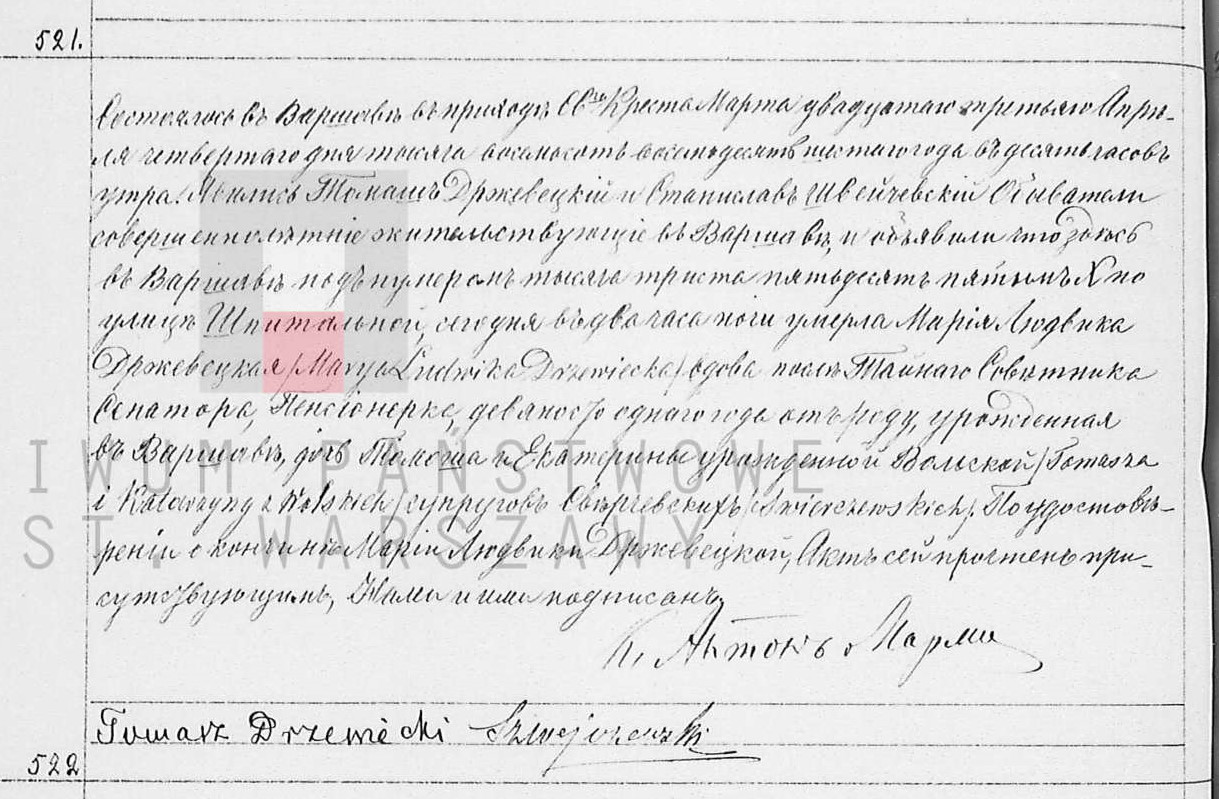 521.
Состоялось въ Варшавѣ въ приходѣ Св. Креста Марта двадцатаго третьяго Апрѣ-
ля четвертаго дня тысяча восемьсотъ восемьдесятъ шестаго года въ десять часовъ
утра. Явились Томашъ Држевецкій и Станиславъ Швейчевскій Обыватели
совершеннолѣтніе жительствующіе въ Варшавѣ, и объявили что здѣсь
въ Варшавѣ подъ нумеромъ тысяча триста пятьдесятъ пятымъ X по
улицѣ Шпитальной, сегодня въ два часа ночи умерла Марія Людвика
Држевецкая /Marya Ludwika Drzewiecka/ вдова послѣ Тайнаго Совѣтника
Сенатора, Пенсіонерка, девяносто однаго года отъ роду, урожденная
въ Варшавѣ, дочь Томаша и Екатерины урожденной Вольской /Tomasza
i Katarzyny z Wolskich/ супруговъ Свѣрчевскихъ /Świerczewskich/. По удостовѣ-
реніи о кончинѣ Маріи Людвики Држевецкой, Актъ сей прочтенъ при-
сутствующимъ, Нами и ими подписанъ.
К. Антонъ
Tomasz Drzewiecki Szwejczewski
522
IWUM PAŃSTWOWE
ST. WARSZAWY